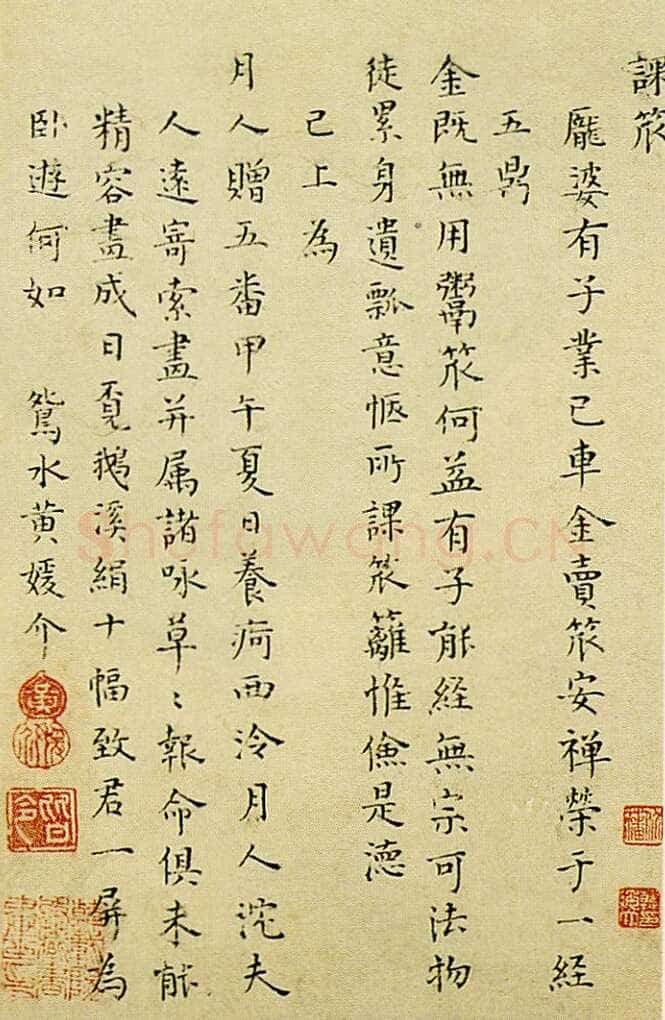 課笊
龐婆有子業已車金賣笊安禪榮于一経
五鼎
金既無用鬻笊何益有子能経無宗可法物
徒累身遺瓢意愜所課笊籬惟儉是德
已上為
月人贈五番甲午夏日養痾西泠月人沱夫
人遠寄索畫并属諸咏草〻報命俱未能
精容畫成日覔鵝溪絹十幅致君一屏為
卧遊何如 鴛水黃媛介
Shufawang.CN